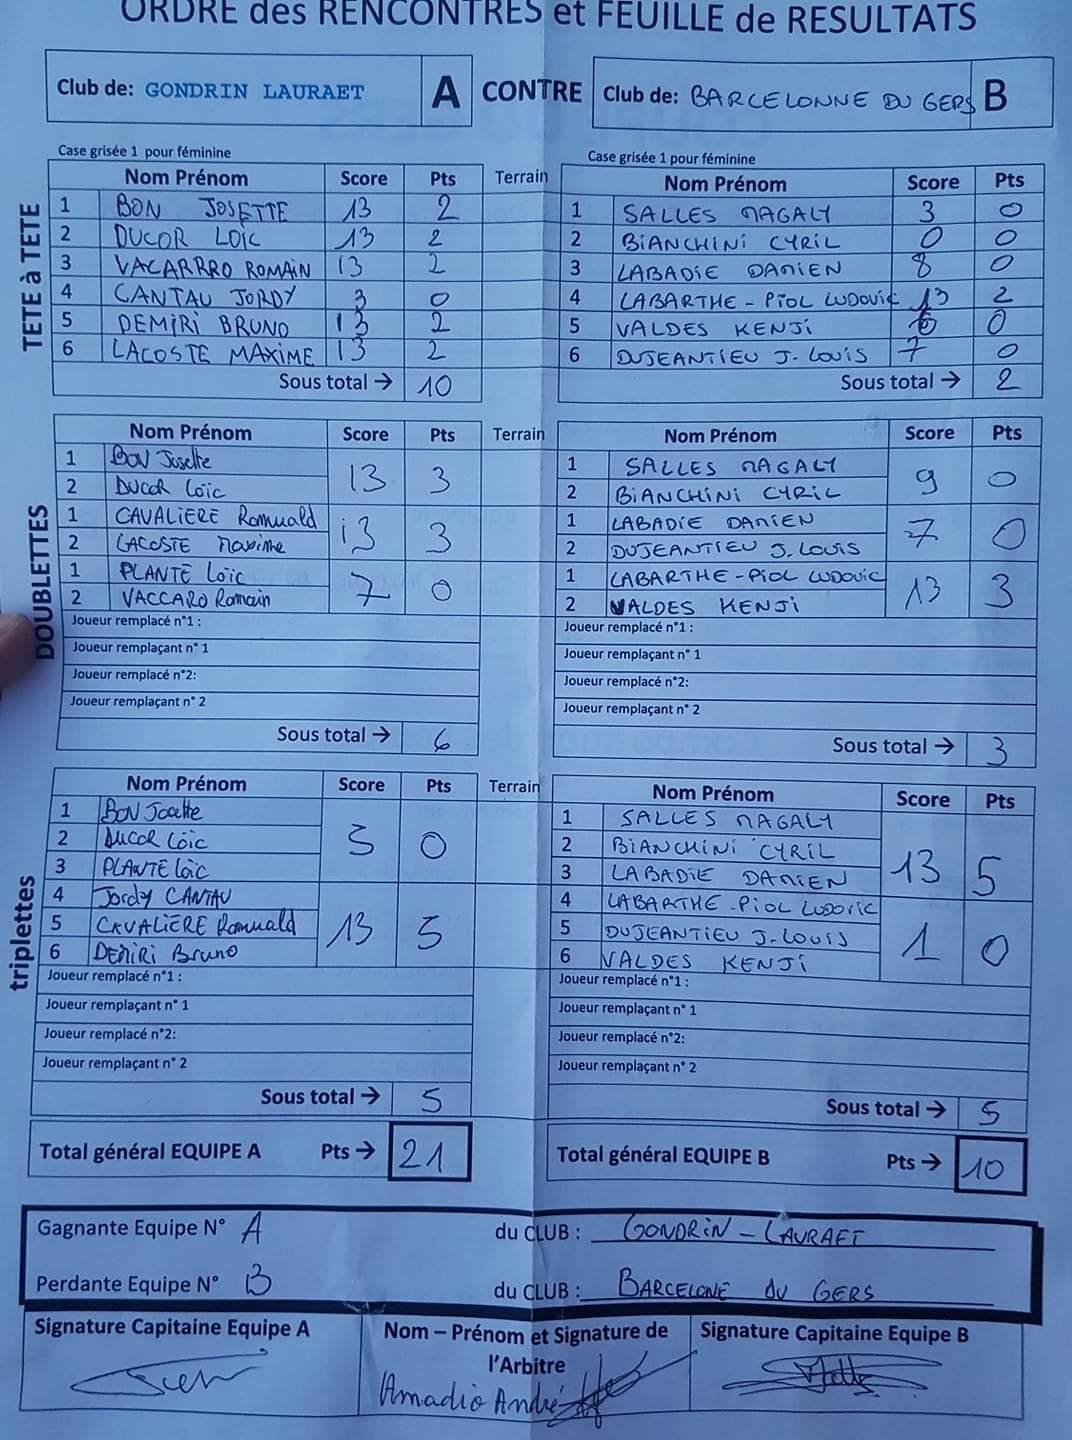 ORDRE des RENCONTRES et FEUILLE de RESULTATS
Club de: GONDRIN LAURAET A CONTRE Club de: BARCELONNE DU GERS B
Case grisée 1 pour féminine Case grisée 1 pour féminine
TETE à TETE
Nom Prénom Score Pts Terrain Nom Prénom Score Pts
1 BON JOSETTE 13 2 1 SALLES MAGALY 3 0
2 DUCOR LOÏC 13 2 2 BIANCHINI CYRIL 0 0
3 VACARRRO ROMAIN 13 2 3 LABADIE DAMIEN 8 0
4 CANTAU JORDY 3 0 4 LABARTHE-PIOL LUDOVIC 13 2
5 DEMIRI BRUNO 13 2 5 VALDES KENJI 6 0
6 LACOSTE MAXIME 13 2 6 DUJEANTIEU J. LOUIS 7 0
Sous total → 10 Sous total → 2
DOUBLETTES
Nom Prénom Score Pts Terrain Nom Prénom Score Pts
1 BON Josette 13 3 1 SALLES MAGALY 9 0
2 DUCOR Loïc 2 BIANCHINI CYRIL
1 CAVALIERE Romuald 13 3 1 LABADIE DAMIEN 7 0
2 LACOSTE Maxime 2 DUJEANTIEU J. LOUIS
1 PLANTE Loïc 7 0 1 LABARTHE-PIOL LUDOVIC 13 3
2 VACCARO Romain 2 VALDES KENJI
Joueur remplacé n°1 : Joueur remplacé n°1 :
Joueur remplaçant n° 1 Joueur remplaçant n° 1
Joueur remplacé n°2: Joueur remplacé n°2:
Joueur remplaçant n° 2 Joueur remplaçant n° 2
Sous total → 6 Sous total → 3
triplettes
Nom Prénom Score Pts Terrain Nom Prénom Score Pts
1 BON Josette 1 SALLES MAGALY
2 DUCOR Loïc 0 2 BIANCHINI CYRIL 13 5
3 PLANTE Loïc 3 LABADIE DAMIEN
4 Jordy CANTAU 4 LABARTHE-PIOL LUDOVIC
5 CAVALIERE Romuald 13 5 5 DUJEANTIEU J. LOUIS 1 0
6 DEMIRI Bruno 6 VALDES KENJI
Joueur remplacé n°1 : Joueur remplacé n°1 :
Joueur remplaçant n° 1 Joueur remplaçant n° 1
Joueur remplacé n°2: Joueur remplacé n°2:
Joueur remplaçant n° 2 Joueur remplaçant n° 2
Sous total → 5 Sous total → 5
Total général EQUIPE A Pts → 21 Total général EQUIPE B Pts → 10
Gagnante Equipe N° A du CLUB : GONDRIN - LAURAET
Perdante Equipe N° B du CLUB : BARCELONE DU GERS
Signature Capitaine Equipe A Nom – Prénom et Signature de Signature Capitaine Equipe B
l'Arbitre
Amadio André